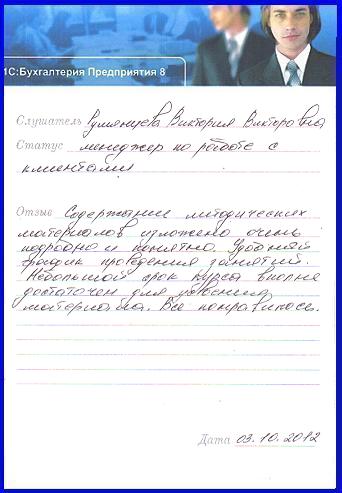 1С:Бухгалтерия Предприятия 8
Слушатель Румянцева Виктория Викторовна
Статус менеджер по работе с
клиентами
Отзыв Содержание методических
материалов изложено очень
подробно и понятно. Удобный
график проведения занятий.
Небольшой срок курса вполне
достаточен для усвоения
материала. Все понравилось.
Дата 03.10.2012